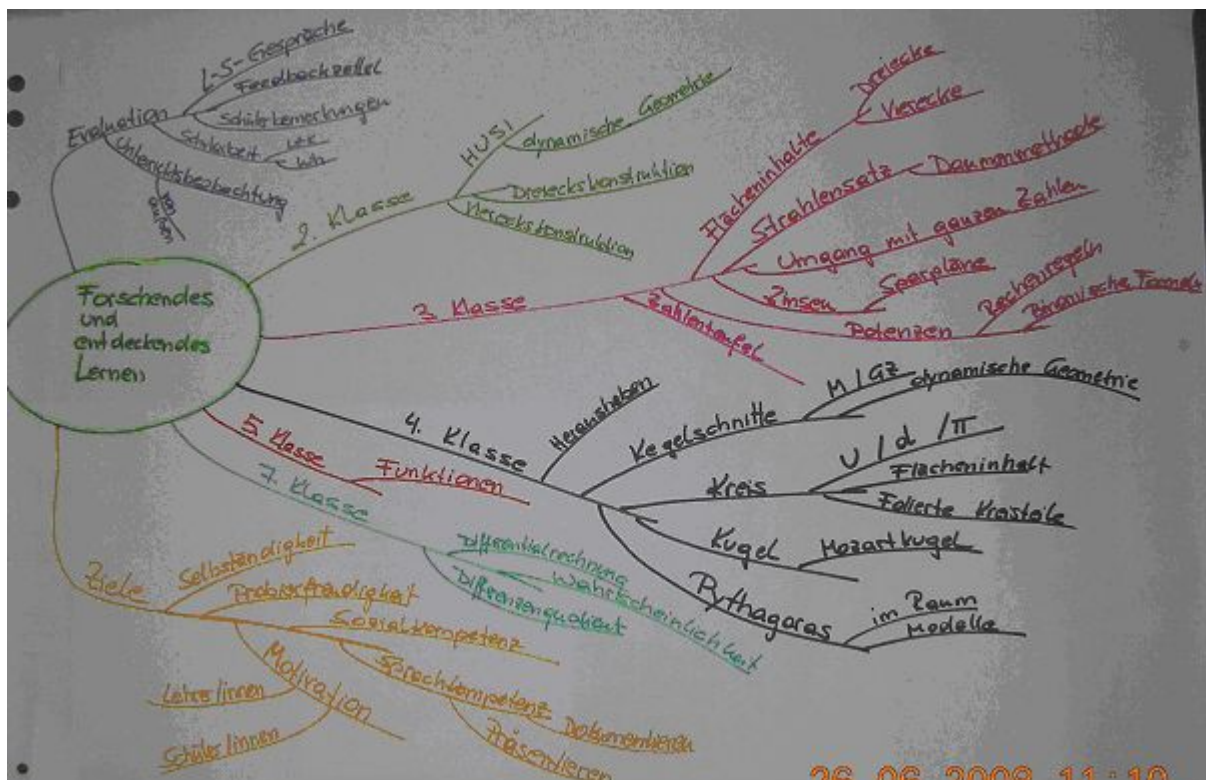 Forschendes
und
entdeckendes
Lernen
Evaluation
L-S-Gespräche
Feedbackzettel
Schülerbemerkungen
Schularbeit
Wh
Unterrichtsbeobachtung
von
außen
2. Klasse
HUSI
dynamische Geometrie
Dreieckskonstruktion
Viereckskonstruktion
3. Klasse
Flächeninhalte
Dreiecke
Vierecke
Strahlensatz
Daumenmethode
Umgang mit ganzen Zahlen
Zinsen
Sparpläne
Potenzen
Rechenregeln
Binomische Formeln
Zahlenteufel
4. Klasse
Herausheben
Kegelschnitte
M/GZ
dynamische Geometrie
Kreis
U/d/π
Flächeninhalt
Folierte Kreisteile
Kugel
Mozartkugel
Pythagoras
im Raum
Modelle
5. Klasse
Funktionen
7. Klasse
Differentialrechnung
Wahrscheinlichkeit
Differenzenquotient
Ziele
Selbständigkeit
Probierfreudigkeit
Sozialkompetenz
Sprachkompetenz
Dokumentieren
Präsentieren
Motivation
Lehrer/innen
Schüler/innen